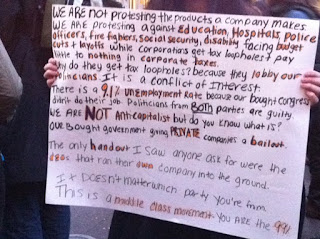 WE ARE not protesting the products a company makes
WE ARE protesting against Education, Hospitals, police
officers, fire fighters, social security, disability facing budget
cuts & layoffs while corporations get tax loopholes & pay
little to nothing in corporate taxes.
Why do they get tax loopholes? because they lobby our
politicians. It is a conflict of interest.
There is a 9.1% unemployment Rate because our bought congress
didn't do their job. Politicians from Both parties are guilty
WE ARE NOT Anti-capitalist but do you know what is?
our Bought government giving PRIVATE companies a bailout.
The only handout I saw anyone ask for were the
CEOs that ran their own company into the ground.
It DOESN'T matter which party you're from
This is a middle class movement. You ARE the 99%